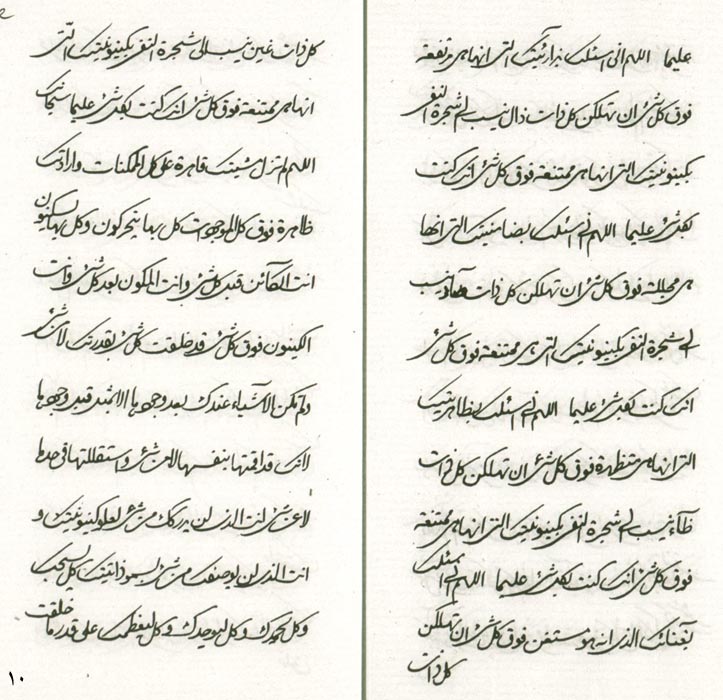 عليما اللهم انى اسئلك بذارئيتك التى انها هى مرتفعة
فوق كل شئ ان تهلكن كل ذات ذال ينسب الى شجرة النفى
بكينونيتك التى انها هى ممتنعة فوق كل شئ انك كنت
بكل شئ عليما اللهم انى اسئلك بضامنيتك التى انها
هى مجللة فوق كل شئ ان تهلكن كل ذات ضاد ينسب
الى شجرة النفى بكينونيتك التى هى ممتنعة فوق كل شئ
انك كنت بكل شئ عليما اللهم انى اسئلك بظاهريتك
التى انها هى متظهرة فوق كل شئ ان تهلكن كل ذات
ظاء ينسب الى شجرة النفى بكينونيتك التى انها هى ممتنعة
فوق كل شئ انك كنت بكل شئ عليما اللهم انى اسئلك
بغنائك الذى انه هو مستغن فوق كل شئ ان تهلكن
كل ذات
كل ذات غين ينسب الى شجرة النفى بكينونيتك التى
انها هى ممتنعة فوق كل شئ انك كنت بكل شئ عليما سبحانك
اللهم لم تزل مشيتك قاهرة على كل الممكنات وارادتك
ظاهرة فوق كل الموجودات كل بها يتحركون وكل بها يسكنون
انت الكائن قبل كل شئ وانت المكون بعد كل شئ وانت
الكينون فوق كل شئ قد خلقت كل شئ بقدرتك لا من شئ
ولم تكن الاشياء عندك بعد وجودها الا كمثل قبل وجودها
لانك قد اقمتها بنفسها لا من شئ واستقللتها فى حدها
لا عن شئ انت الذى لن يدركك من شئ لعلو كينونيتك و
انت الذى لن يوصفك من شئ لسمو ذاتيتك كل يسجد لك
وكل ليحمدك وكل ليوحدك وكل ليعظمك على قدر ما خلقت
١٠